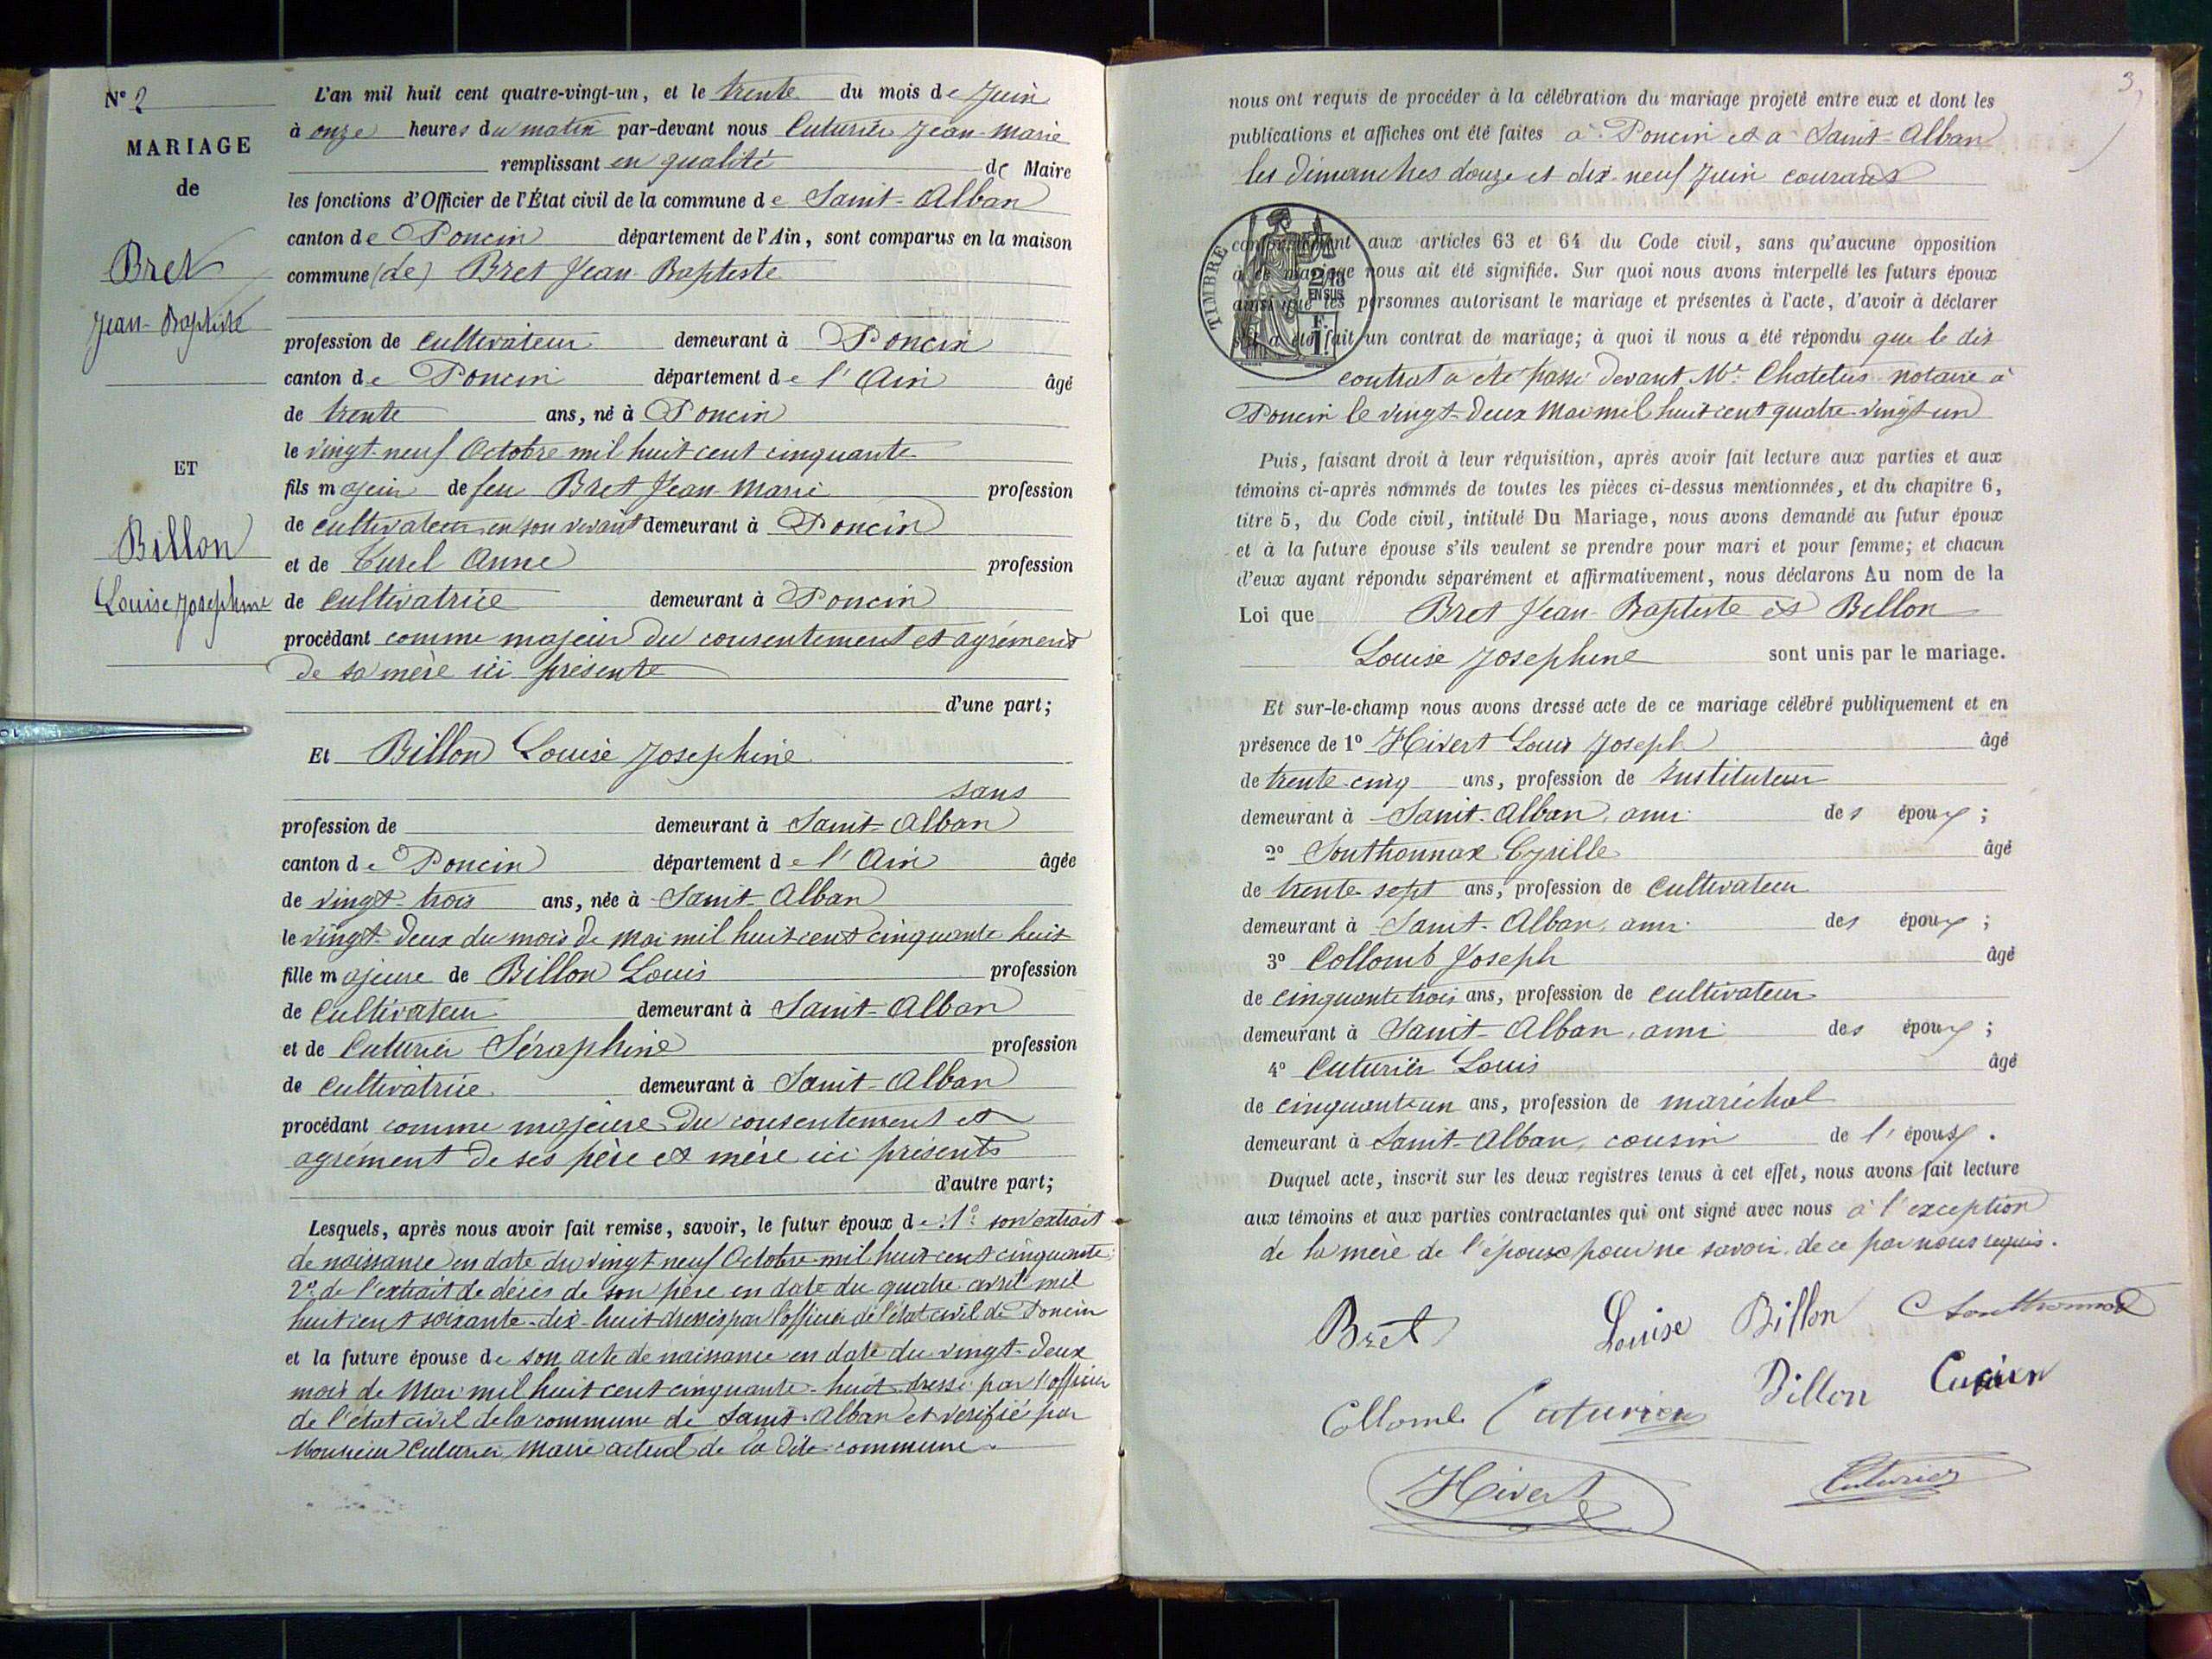 N° 2
MARIAGE
de
Bret
Jean-Baptiste
ET
Billon
Louise Josephine
L'an mil huit cent quatre-vingt-un, et le trente du mois de Juin
à onze heures du matin par-devant nous Cuturier Jean-Marie
remplissant en qualité de Maire
les fonctions d'Officier de l'État civil de la commune de Saint-Alban
canton de Poncin département de l'Ain, sont comparus en la maison
commune (de) Bret Jean-Baptiste
profession de cultivateur demeurant à Poncin
canton de Poncin département de l'Ain âgé
de trente ans, né à Poncin
le vingt-neuf Octobre mil huit cent cinquante
fils majeur de feu Bret Jean-Marie profession
de cultivateur en son vivant demeurant à Poncin
et de Turel Anne profession
de cultivatrice demeurant à Poncin
procédant comme majeur du consentement et agrément
de sa mère ici présente
d'une part;
Et Billon Louise Josephine
sans
profession de demeurant à Saint-Alban
canton de Poncin département de l'Ain âgée
de vingt-trois ans, née à Saint-Alban
le vingt-deux du mois de Mai mil huit cent cinquante huit
fille majeure de Billon Louis profession
de Cultivateur demeurant à Saint-Alban
et de Cuturier Séraphine profession
de cultivatrice demeurant à Saint-Alban
procédant comme majeure du consentement et
agrément de ses père et mère ici présents
d'autre part;
Lesquels, après nous avoir fait remise, savoir, le futur époux de: 1° son extrait
de naissance en date du vingt neuf Octobre mil huit cent cinquante
2° de l'extrait de décès de son père en date du quatre avril mil
huit cent soixante-dix-huit dressés par l'officier de l'état civil de Poncin
et la future épouse de son acte de naissance en date du vingt-deux
mois de Mai mil huit cent cinquante-huit dressé par l'officier
de l'état civil de la commune de Saint-Alban et vérifié par
Monsieur Cuturier, Maire actuel de la dite commune.
3
nous ont requis de procéder à la célébration du mariage projeté entre eux et dont les
publications et affiches ont été faites à Poncin et à Saint-Alban
les dimanches douze et dix-neuf Juin courant
TIMBRE
2/10
EN SUS
F.
1.
conformément aux articles 63 et 64 du Code civil, sans qu'aucune opposition
à ce mariage nous ait été signifiée. Sur quoi nous avons interpellé les futurs époux
ainsi que les personnes autorisant le mariage et présentes à l'acte, d'avoir à déclarer
s'il a été fait un contrat de mariage; à quoi il nous a été répondu que le dit
contrat a été passé devant Me Chatelus notaire à
Poncin le vingt-deux Mai mil huit cent quatre-vingt-un
Puis, faisant droit à leur réquisition, après avoir fait lecture aux parties et aux
témoins ci-après nommés de toutes les pièces ci-dessus mentionnées, et du chapitre 6,
titre 5, du Code civil, intitulé Du Mariage, nous avons demandé au futur époux
et à la future épouse s'ils veulent se prendre pour mari et pour femme; et chacun
d'eux ayant répondu séparément et affirmativement, nous déclarons Au nom de la
Loi que Bret Jean-Baptiste et Billon
Louise Josephine sont unis par le mariage.
Et sur-le-champ nous avons dressé acte de ce mariage célébré publiquement et en
présence de 1° Hivert Louis Joseph âgé
de trente-cinq ans, profession de Instituteur
demeurant à Saint-Alban, ami des époux;
2° Southonnax Cyrille âgé
de trente-sept ans, profession de Cultivateur
demeurant à Saint-Alban, ami des époux;
3° Collomb Joseph âgé
de cinquante trois ans, profession de cultivateur
demeurant à Saint-Alban, ami des époux;
4° Cuturier Louis âgé
de cinquante un ans, profession de maréchal
demeurant à Saint-Alban, cousin de l'épouse.
Duquel acte, inscrit sur les deux registres tenus à cet effet, nous avons fait lecture
aux témoins et aux parties contractantes qui ont signé avec nous à l'exception
de la mère de l'époux pour ne savoir, de ce par nous requis.
Bret Louise Billon Southonnax
Collomb Cuturier Billon
Hivert Cuturier